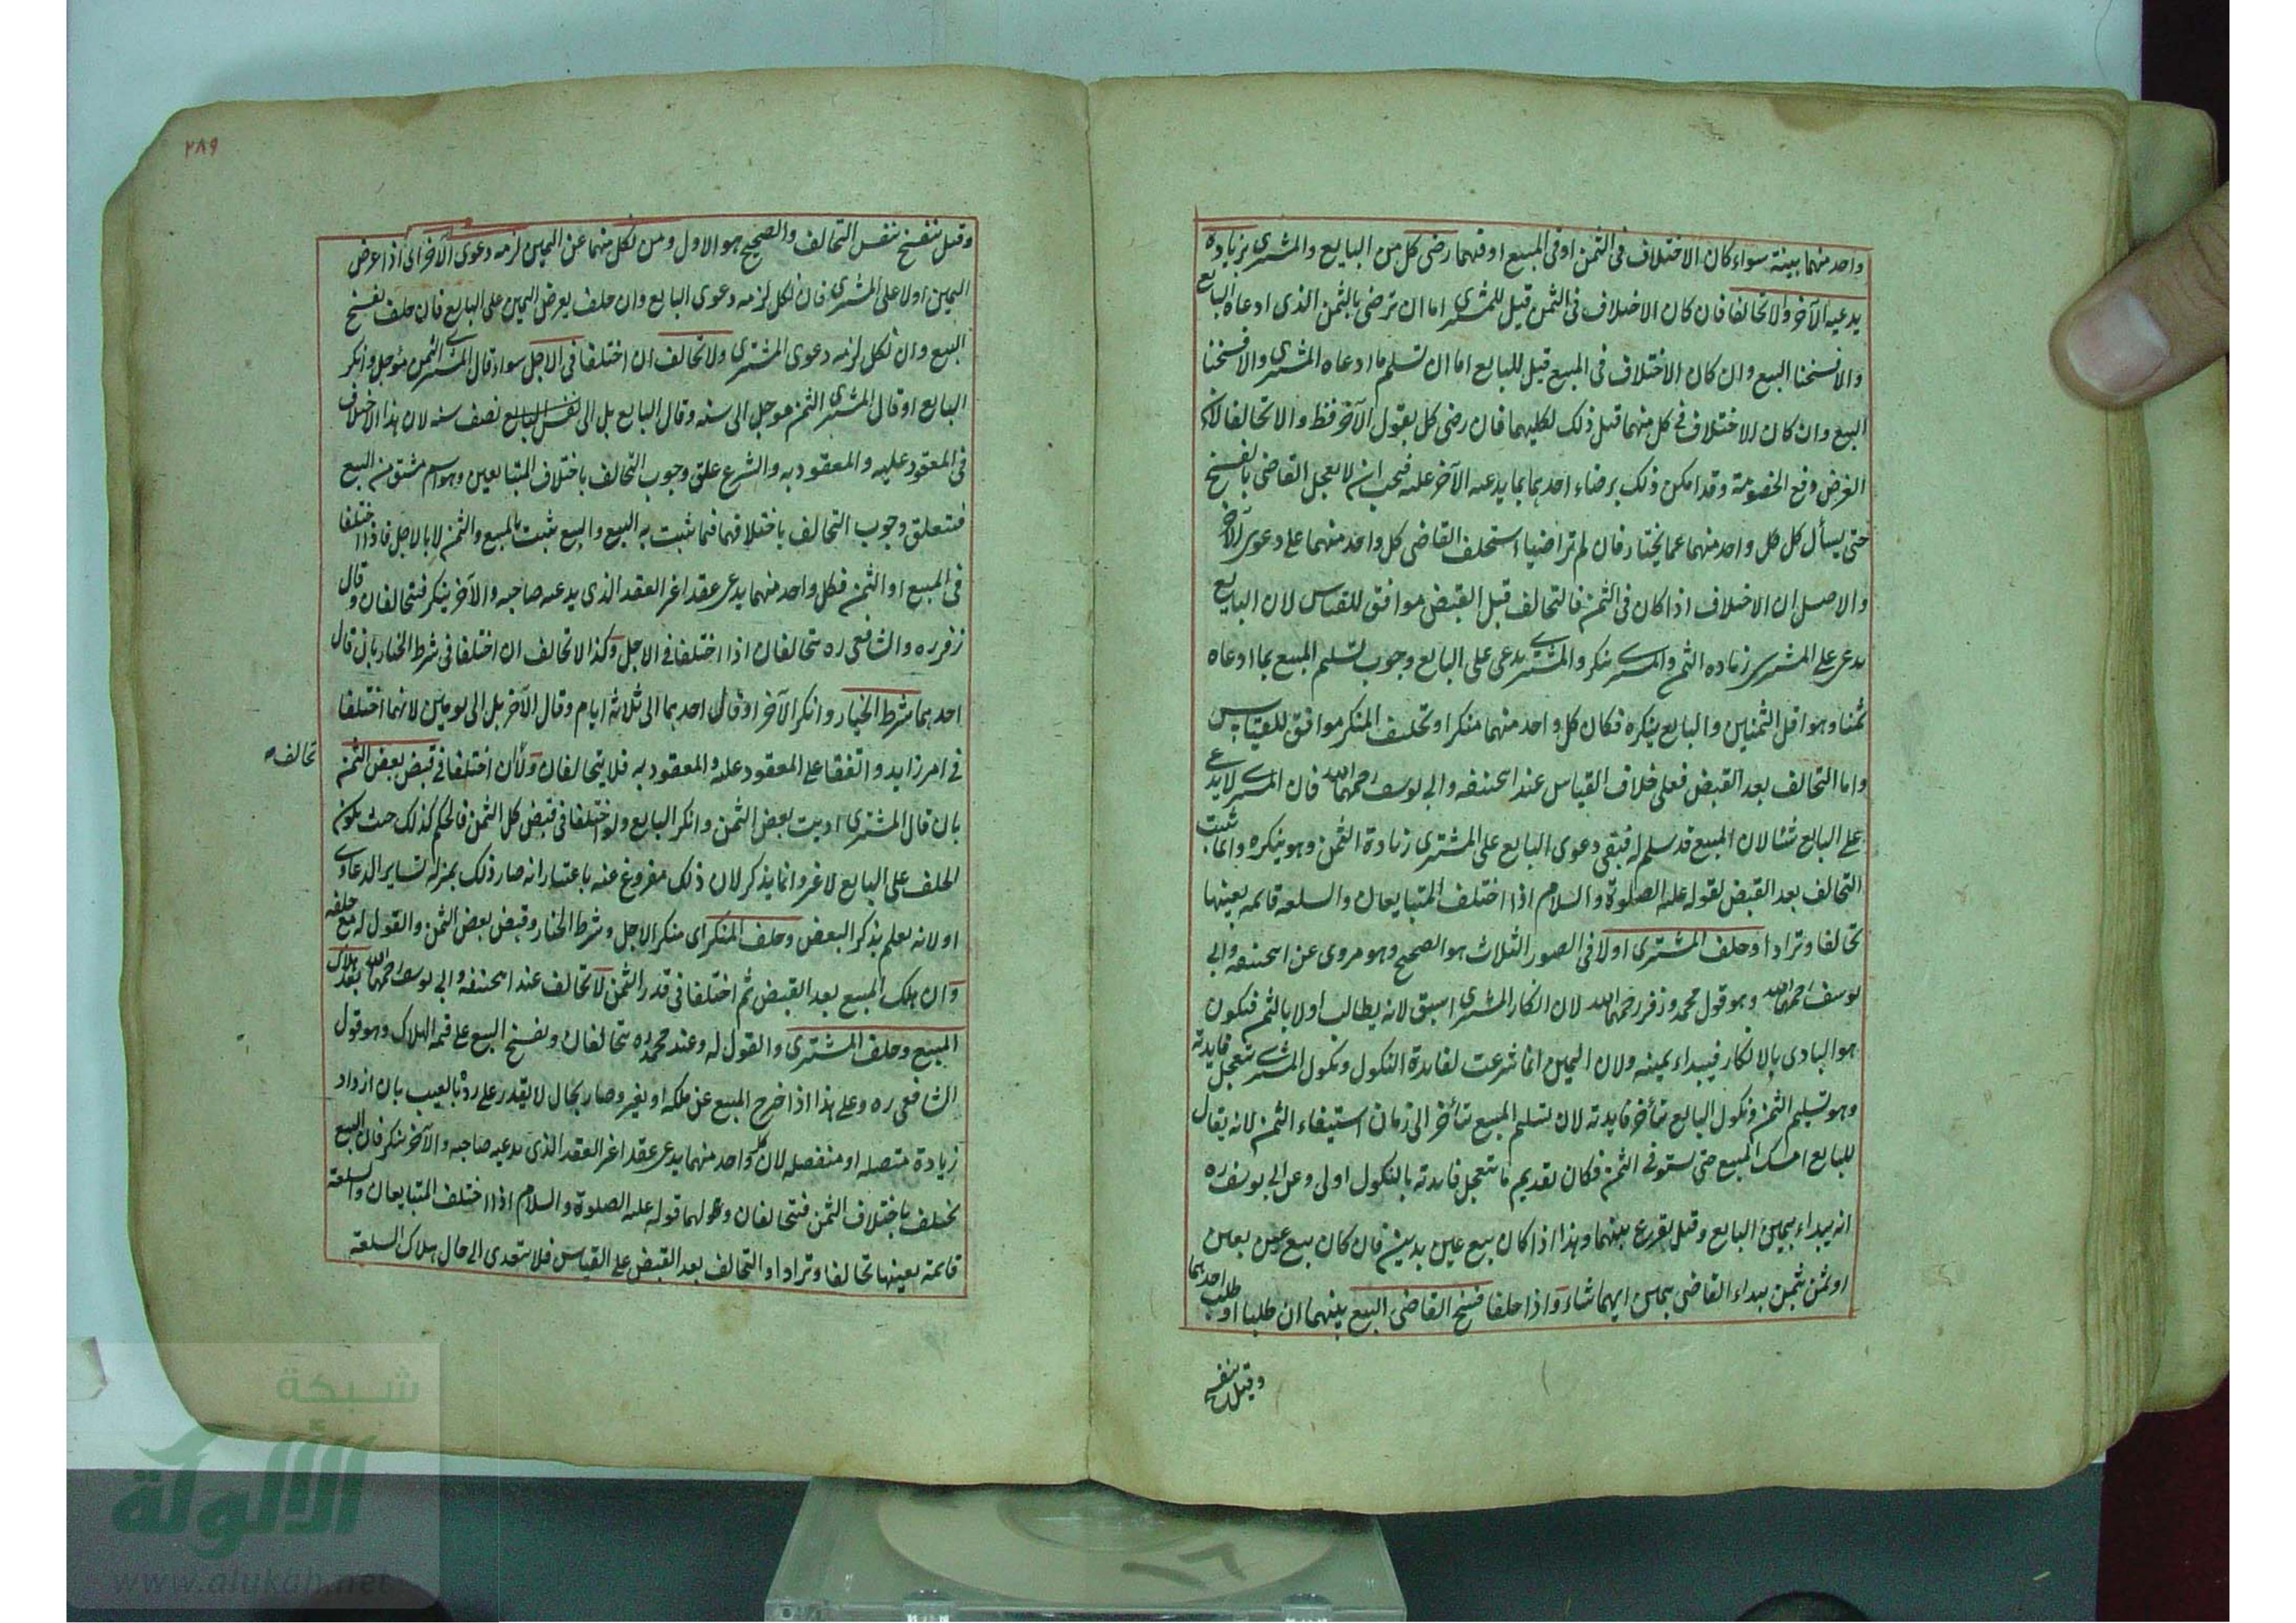 واحد منهما بينة سواء كان الاختلاف فى الثمن او فى المبيع او فيهما رضى كل من البايع والمشترى بزيادة
يدعيه الآخر والا تحالفا فان كان الاختلاف فى الثمن قيل للمشترى اما ان ترضى بالثمن الذى ادعاه البايع
والا فسخنا البيع وان كان الاختلاف فى المبيع قيل للبايع اما ان تسلم ما ادعاه المشترى والا فسخنا
البيع وان كان الاختلاف فى كل منهما قيل ذلك لكليهما فان رضى كل بقول الآخر فظ والا تحالفا لان
الغرض دفع الخصومة وقد امكن ذلك برضاء احدهما بما يدعيه الآخر عليه فيجب ان لا يعجل القاضى بالفسخ
حتى يسأل كل كل واحد منهما عما يختار فان لم تراضيا استحلف القاضى كل واحد منهما على دعوى الآخر
والاصل ان الاختلاف اذا كان فى الثمن فالتحالف قبل القبض موافق للقياس لان البايع
يدعى على المشترى زياده الثمن والمشترى ينكر والمشترى يدعى على البايع وجوب تسليم المبيع بما ادعاه
ثمنا وهو اقل الثمنين والبايع ينكره فكان كل واحد منهما منكرا وتحليف المنكر موافق للقياس
واما التحالف بعد القبض فعلى خلاف القياس عند ابحنيفه وابى يوسف رحمهما الله فان المشترى لا يدعى
على البايع شئا لان المبيع قد سلم له فبقى دعوى البايع على المشترى زيادة الثمن وهو ينكره وانما ثبت
التحالف بعد القبض لقوله عليه الصلوة والسلام اذا اختلف المتبايعان والسلعه قايمه بعينها
تحالفا وترادا وحلف المشترى اولا فى الصور الثلاث هو الصحيح وهو مروى عن ابحنيفه وابى
يوسف رحمهما الله وهو قول محمد وزفر رحمهما الله لان انكار المشترى اسبق لانه يطالب اولا بالثمن فيكون
هو البادى بالانكار فيبداء بيمينه ولان اليمين انما شرعت لفايدة النكول ونكول المشترى تتعجل فايدته
وهو تسليم الثمن ونكول البايع تتأخر فايدته لان تسليم المبيع تتأخر الى زمان استيفاء الثمن لانه يقال
للبايع امسك المبيع حتى تستوفى الثمن فكان تقديم ما تتعجل فايدته بالنكول اولى وعن ابى يوسف ره
انه يبداء بيمين البايع وقيل يقرع بينهما وهذا اذا كان بيع عين بدين فان كان بيع عين بعين
او ثمن بثمن يبداء القاضى بيمين ايهما شاء واذا حلفا فسخ القاضى البيع بينهما ان طلبا او طلب احدهما
وقيل ينفسخ
٢٨٩
وقيل ينفسخ بنفس التحالف والصحيح هو الاول ومن نكل منهما عن اليمين لزمه دعوى الآخر اى اذا عرض
اليمين اولا على المشترى فان نكل لزمه دعوى البايع وان حلف يعرض اليمين على البايع فان حلف يفسخ
البيع وان نكل لزمه دعوى المشترى ولا تحالف ان اختلفا فى الاجل سواء قال المشترى الثمن مؤجل وانكر
البايع او قال المشترى الثمن مؤجل الى سنه وقال البايع بل الى نصف سنه لان هذا الاختلاف
فى المعقود عليه والمعقود به والشرع علق وجوب التحالف باختلاف المتبايعين وهو اسم مشتق من البيع
فيتعلق وجوب التحالف باختلافهما فيما يثبت به البيع والبيع يثبت بالمبيع والثمن لا بالاجل فاذا اختلفا
فى المبيع او الثمن فكل واحد منهما يدعى عقدا غير العقد الذى يدعيه صاحبه والآخر ينكر فيتحالفان وقال
زفر ره والشافعى ره يتحالفان اذا اختلفا فى الاجل وكذا لا تحالف ان اختلفا فى شرط الخيار بان قال
احدهما شرط الخيار وانكر الآخر او قال احدهما الى ثلاثة ايام وقال الآخر بل الى يومين لانهما اختلفا
فى امر زايد واتفقا على المعقود عليه والمعقود به فلا يتحالفان ولا ان اختلفا فى قبض بعض الثمن
تحالف
بان قال المشترى اديت بعض الثمن وانكر البايع ولو اختلفا فى قبض كل الثمن فالحكم كذلك حيث يكون
الحلف على البايع لا غير وانما يذكر لان ذلك مفروغ عنه باعتبار انه صار ذلك بمنزله ساير الدعاوى
او لانه يعلم بذكر البعض وحلف المنكر اى منكر الاجل وشرط الخيار وقبض بعض الثمن والقول له مع حلفه
وان هلك المبيع بعد القبض ثم اختلفا فى قدر الثمن لا تحالف عند ابحنيفه وابى يوسف رحمهما الله بعد هلاك
المبيع وحلف المشترى والقول له وعند محمد ره يتحالفان ويفسخ البيع على قيمه الهلاك وهو قول
الشافعى ره وعلى هذا اذا خرج المبيع عن ملكه او يغير وصار بحال لا يقدر على رده بالعيب بان ازداد
زيادة متصله او منفصله لان كل واحد منهما يدعى عقدا غير العقد الذى يدعيه صاحبه والآخر ينكر فان البيع
يختلف باختلاف الثمن فيتحالفان ولهما قوله عليه الصلوة والسلام اذا اختلف المتبايعان والسلعة
قائمة بعينها تحالفا وترادا والتحالف بعد القبض على القياس فلا يتعدى الى حال هلاك السلعة
شبكة
الألوكة
www.alukah.net